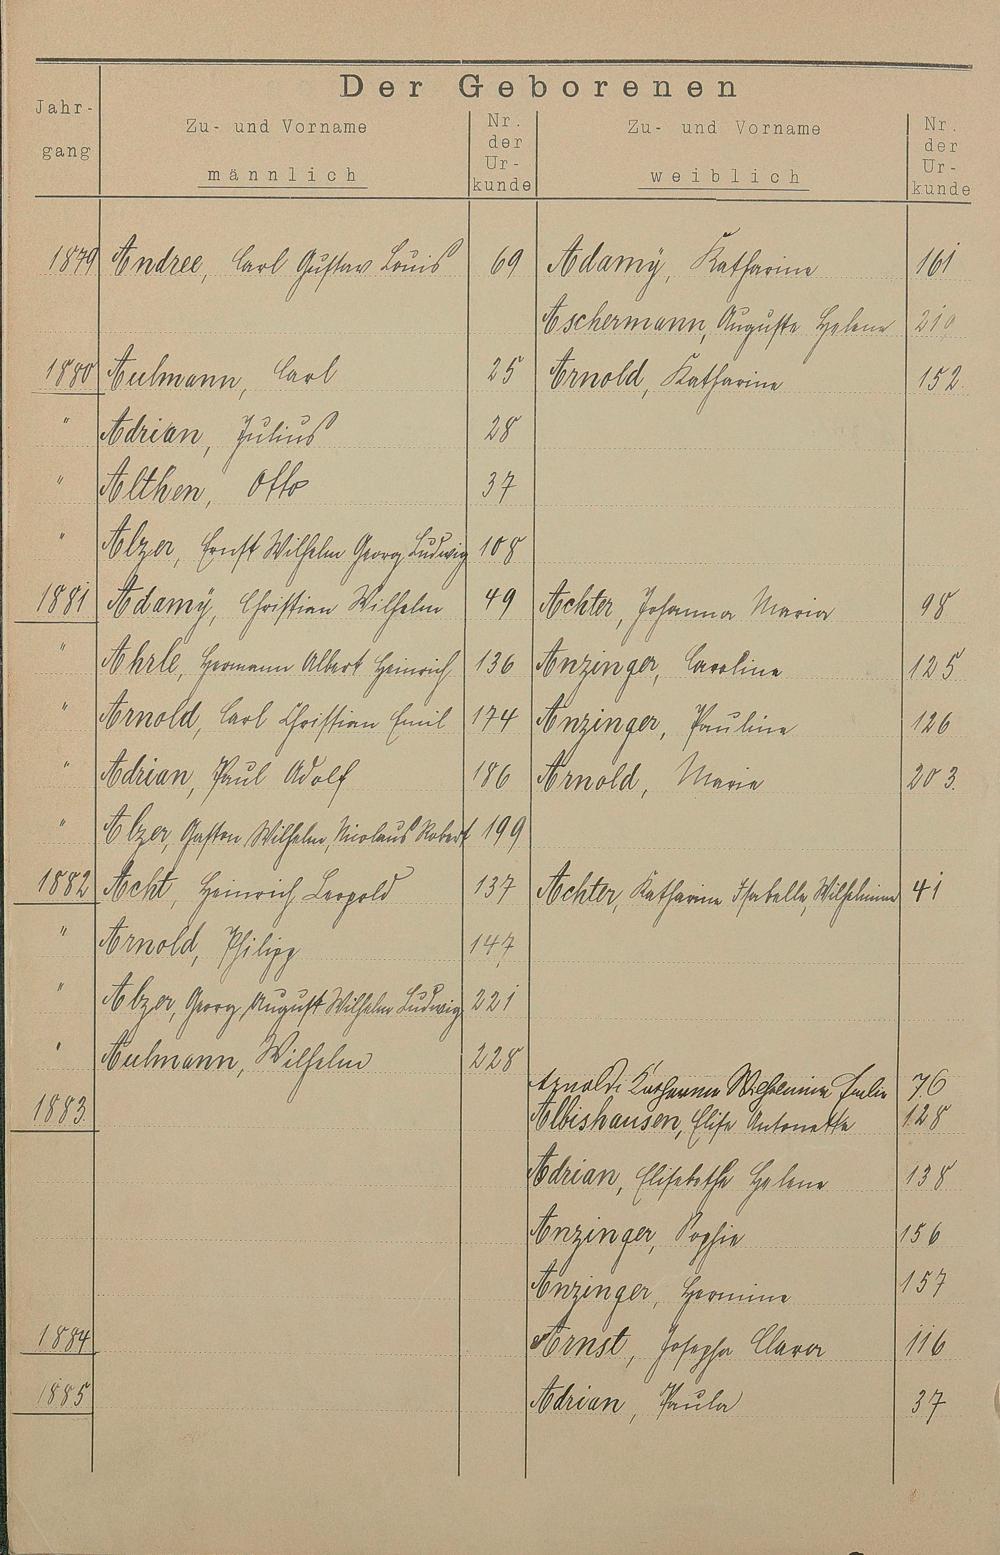 Der Geborenen
Jahr-
gang
Zu- und Vorname
männlich
Nr.
der
Ur-
kunde
Zu- und Vorname
weiblich
Nr.
der
Ur-
kunde
1879 Andree, Carl Gustav Louis 69 Adamÿ, Katharine 161
Aschermann, Auguste Helene 210
1880 Aulmann, Carl 25 Arnold, Katharine 152.
" Adrian, Julius 28
" Althen, Otto 37
" Alzer, Ernst Wilhelm Georg Ludwig 108
1881 Adamÿ, Christian Wilhelm 49 Achter, Johanna Maria 98
" Ahrle, Hermann Albert Heinrich 136 Anzinger, Caroline 125
" Arnold, Carl Christian Emil 174 Anzinger, Pauline 126
" Adrian, Paul Adolf 186 Arnold, Marie 203.
" Alzer, Gaston Wilhelm, Nicolaus Robert 199
1882 Acht, Heinrich Leopold 137 Achter, Katharine Isabelle, Wilhelmine 41
" Arnold, Philipp 147
" Alzer, Georg August Wilhelm Ludwig 221
" Aulmann, Wilhelm 228
Arnold, Katharina Wilhelmine Emilie 76
1883. Albishausen, Elise Antonette 128
Adrian, Elisabethe Helene 138
Anzinger, Sophie 156
Anzinger, Hermine 157
1884 Arnst, Josepha Clara 116
1885 Adrian, Paula 37